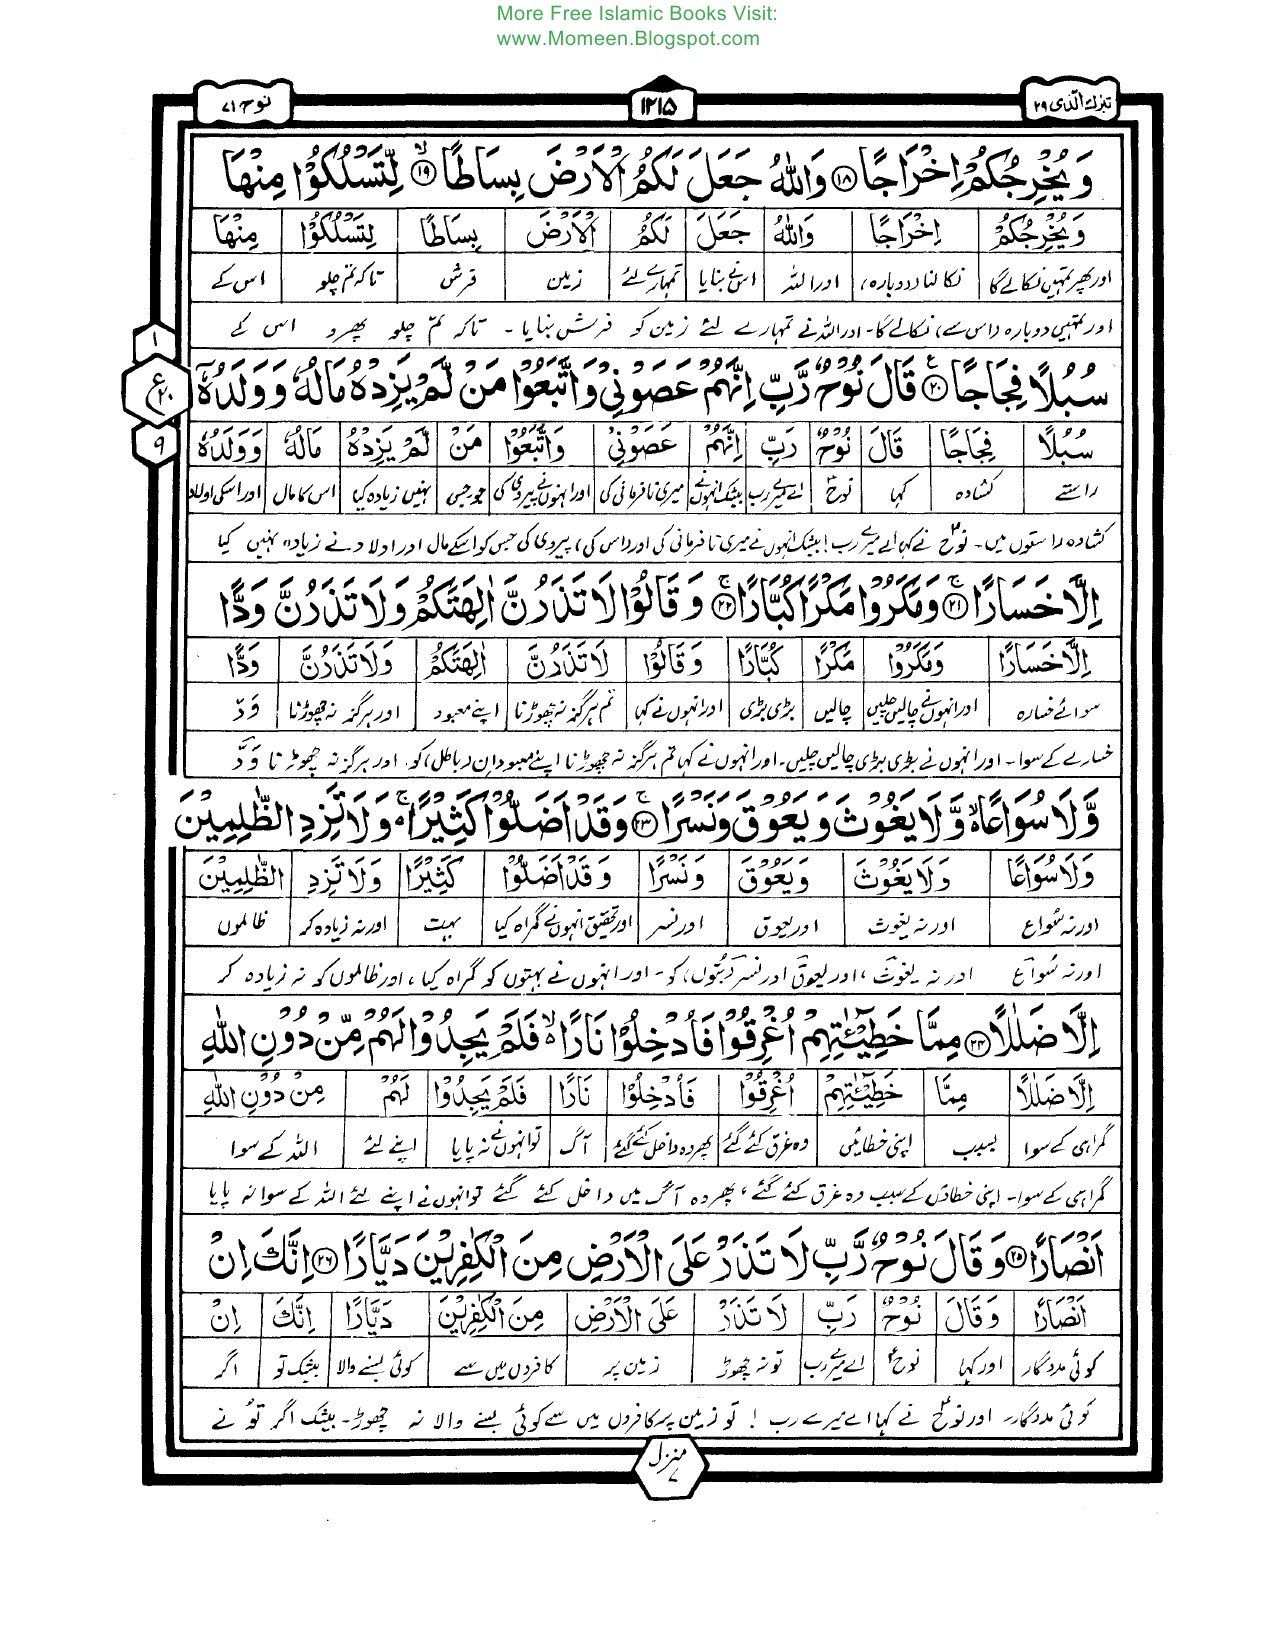 More Free Islamic Books Visit:
www.Momeen.Blogspot.com
تبٰرك الّذی ۲۹
۱۲۱۵
نوح ۷۱
وَيُخْرِجُكُمْ اِخْرَاجًا ۝۱۸ وَاللّٰهُ جَعَلَ لَكُمُ الْاَرْضَ بِسَاطًا ۝۱۹ۙ لِّتَسْلُكُوْا مِنْهَا
وَيُخْرِجُكُمْ اِخْرَاجًا وَاللّٰهُ جَعَلَ لَكُمُ الْاَرْضَ بِسَاطًا لِتَسْلُكُوْا مِنْهَا
اور پھر تمہیں نکالے گا نکالنا (دوبارہ) اور اللہ اس نے بنایا تمہارے لئے زمین فرش تاکہ تم چلو اس کے
اور تمہیں دوبارہ (اس سے) نکالے گا۔ اور اللہ نے تمہارے لئے زمین کو فرش بنایا ۔ تاکہ تم چلو پھرو اس کے
۱
ع ۲۰
۹
سُبُلًا فِجَاجًا ۝۲۰ۧ قَالَ نُوْحٌ رَّبِّ اِنَّهُمْ عَصَوْنِيْ وَاتَّبَعُوْا مَنْ لَّمْ يَزِدْهُ مَالُهٗ وَوَلَدُهٗۤ
سُبُلًا فِجَاجًا قَالَ نُوْحٌ رَبِّ اِنَّهُمْ عَصَوْنِيْ وَاتَّبَعُوْا مَنْ لَمْ يَزِدْهُ مَالُهٗ وَوَلَدُهٗ
راستے کشادہ کہا نوح اے میرے رب بیشک انہوں نے میری نافرمانی کی اور انہوں نے پیروی کی جو۔جس نہیں زیادہ کیا اس کا مال اور اسکی اولاد
کشادہ راستوں میں۔ نوح نے کہا اے میرے رب! بیشک انہوں نے میری نافرمانی کی اور (اس کی) پیروی کی جس کو اسکے مال اور اولاد نے زیادہ نہیں کیا
اِلَّا خَسَارًا ۝۲۱ۚ وَمَكَرُوْا مَكْرًا كُبَّارًا ۝۲۲ۚ وَقَالُوْا لَا تَذَرُنَّ اٰلِهَتَكُمْ وَلَا تَذَرُنَّ وَدًّا
اِلَّا خَسَارًا وَمَكَرُوْا مَكْرًا كُبَّارًا وَقَالُوْا لَا تَذَرُنَّ اٰلِهَتَكُمْ وَلَا تَذَرُنَّ وَدًّا
سوائے خسارہ اور انہوں نے چالیں چلیں چالیں بڑی بڑی اور انہوں نے کہا تم ہرگز نہ چھوڑنا اپنے معبود اور ہرگز نہ چھوڑنا وَدّ
خسارے کے سوا۔ اور انہوں نے بڑی بڑی چالیں چلیں۔ اور انہوں نے کہا تم ہرگز نہ چھوڑنا اپنے معبودان (باطل) کو، اور ہرگز نہ چھوڑنا وَدّ
وَّلَا سُوَاعًا ەۙ وَّلَا يَغُوْثَ وَيَعُوْقَ وَنَسْرًا ۝۲۳ۚ وَقَدْ اَضَلُّوْا كَثِيْرًا ەۚ وَلَا تَزِدِ الظّٰلِمِيْنَ
وَلَا سُوَاعًا وَلَا يَغُوْثَ وَيَعُوْقَ وَنَسْرًا وَقَدْ اَضَلُّوْا كَثِيْرًا وَلَا تَزِدِ الظّٰلِمِيْنَ
اور نہ سُواع اور نہ یغوث اور یعوق اور نسر اور تحقیق انہوں نے گمراہ کیا بہت اور نہ زیادہ کر ظالموں
اور نہ سُواع اور نہ یغوث، اور یعوق اور نسر (بتوں) کو۔ اور انہوں نے بہتوں کو گمراہ کیا، اور ظالموں کو نہ زیادہ کر
اِلَّا ضَلٰلًا ۝۲۴ مِمَّا خَطِيْٓـٰٔتِهِمْ اُغْرِقُوْا فَاُدْخِلُوْا نَارًا ەۙ فَلَمْ يَجِدُوْا لَهُمْ مِّنْ دُوْنِ اللّٰهِ
اِلَّا ضَلٰلًا مِمَّا خَطِيْٓـٰٔتِهِمْ اُغْرِقُوْا فَاُدْخِلُوْا نَارًا فَلَمْ يَجِدُوْا لَهُمْ مِنْ دُوْنِ اللّٰهِ
گمراہی کے سوا بسبب اپنی خطائیں وہ غرق کئے گئے پھر وہ داخل کئے گئے آگ تو انہوں نے نہ پایا اپنے لئے اللہ کے سوا
گمراہی کے سوا۔ اپنی خطاؤں کے سبب وہ غرق کئے گئے، پھر وہ آگ میں داخل کئے گئے تو انہوں نے اپنے لئے اللہ کے سوا نہ پایا
اَنْصَارًا ۝۲۵ وَقَالَ نُوْحٌ رَّبِّ لَا تَذَرْ عَلَى الْاَرْضِ مِنَ الْكٰفِرِيْنَ دَيَّارًا ۝۲۶ اِنَّكَ اِنْ
اَنْصَارًا وَقَالَ نُوْحٌ رَبِّ لَا تَذَرْ عَلَى الْاَرْضِ مِنَ الْكٰفِرِيْنَ دَيَّارًا اِنَّكَ اِنْ
کوئی مددگار اور کہا نوح اے میرے رب تو نہ چھوڑ زمین پر کافروں میں سے کوئی بسنے والا بیشک تو اگر
کوئی مددگار۔ اور نوح نے کہا اے میرے رب ! تو زمین پر کافروں میں سے کوئی بسنے والا نہ چھوڑ۔ بیشک اگر تو نے
منزل ۷